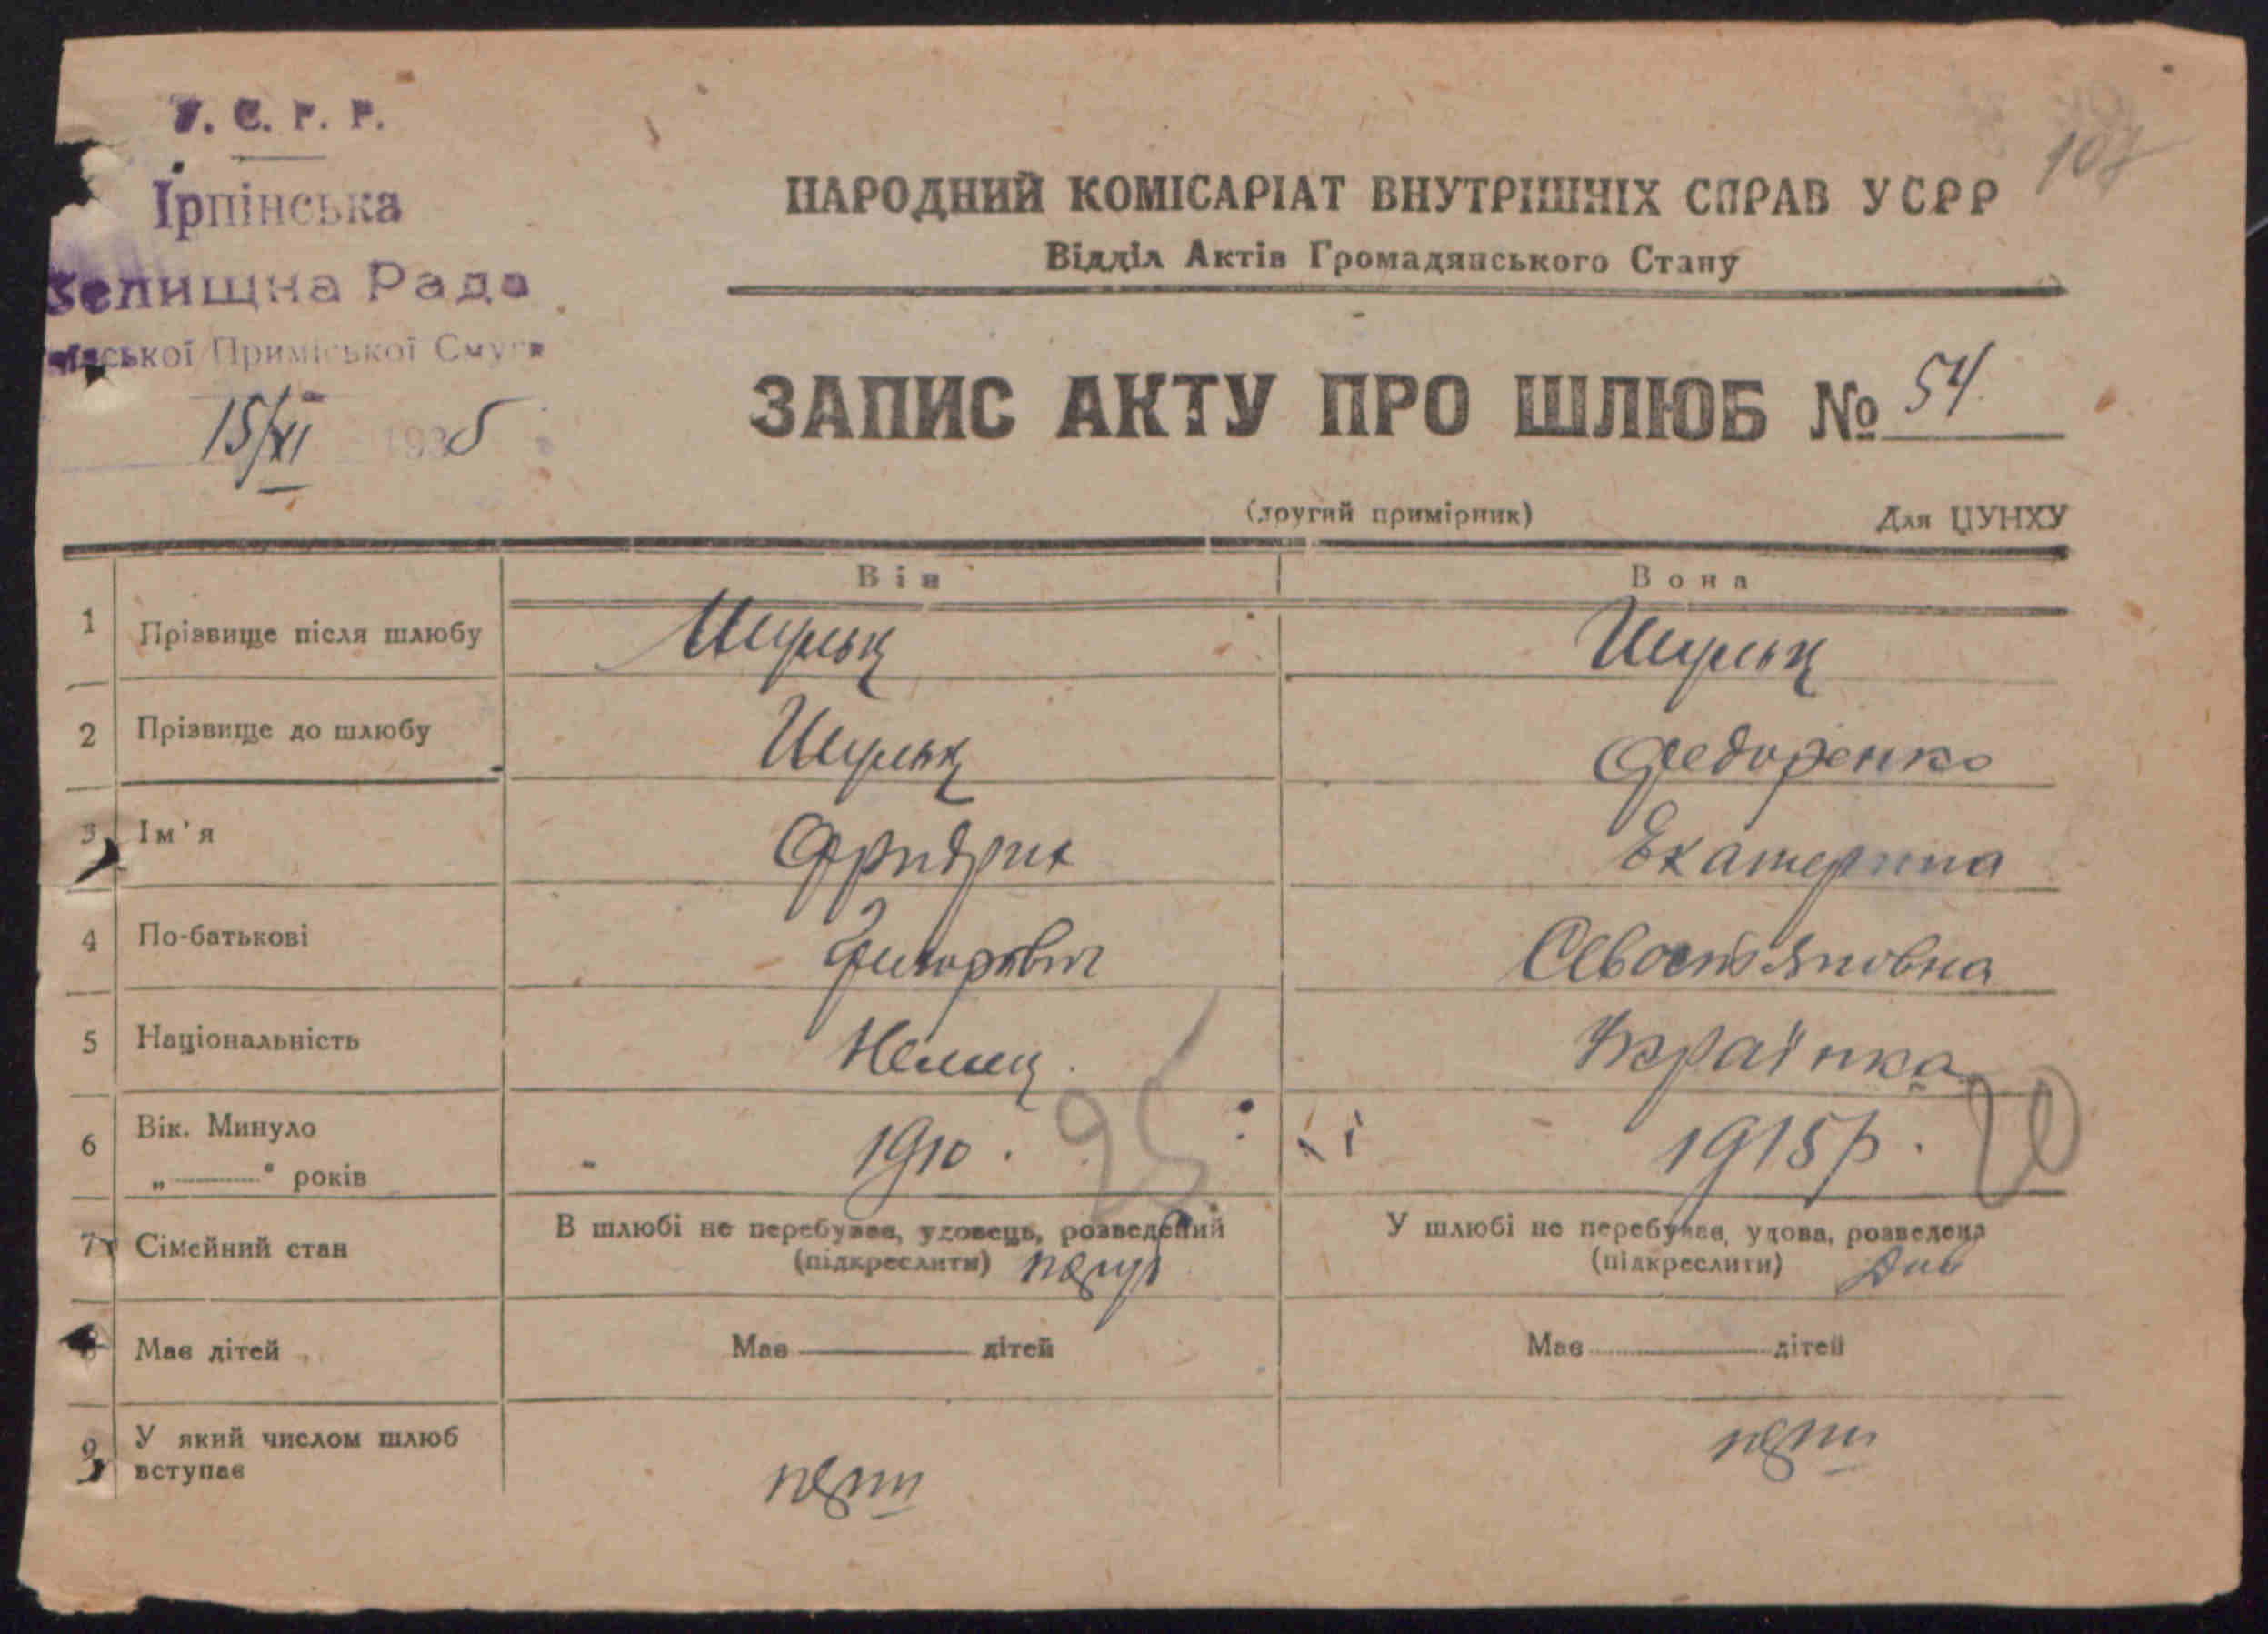 У. С. Р. Р.
Ірпінська
Селищна Рада
Приміської Смуги
15/XI 1935
107
НАРОДНИЙ КОМІСАРІАТ ВНУТРІШНІХ СПРАВ УСРР
Відділ Актів Громадянського Стану
ЗАПИС АКТУ ПРО ШЛЮБ № 54.
(другий примірник) Для ЦУНХУ
Він Вона
1 Прізвище після шлюбу Шульц Шульц
2 Прізвище до шлюбу Шульц Федоренко
3 Ім'я Фридрих Екатерина
4 По-батькові Севостяновна
5 Національність Немец. Українка
6 Вік. Минуло 1910. 25 1915 р. 20
„———“ років
7 Сімейний стан В шлюбі не перебуває, удовець, розведений У шлюбі не перебуває, удова, розведена
(підкреслити) (підкреслити)
8 Має дітей Має ——— дітей Має ——— дітей
9 У який числом шлюб
вступає